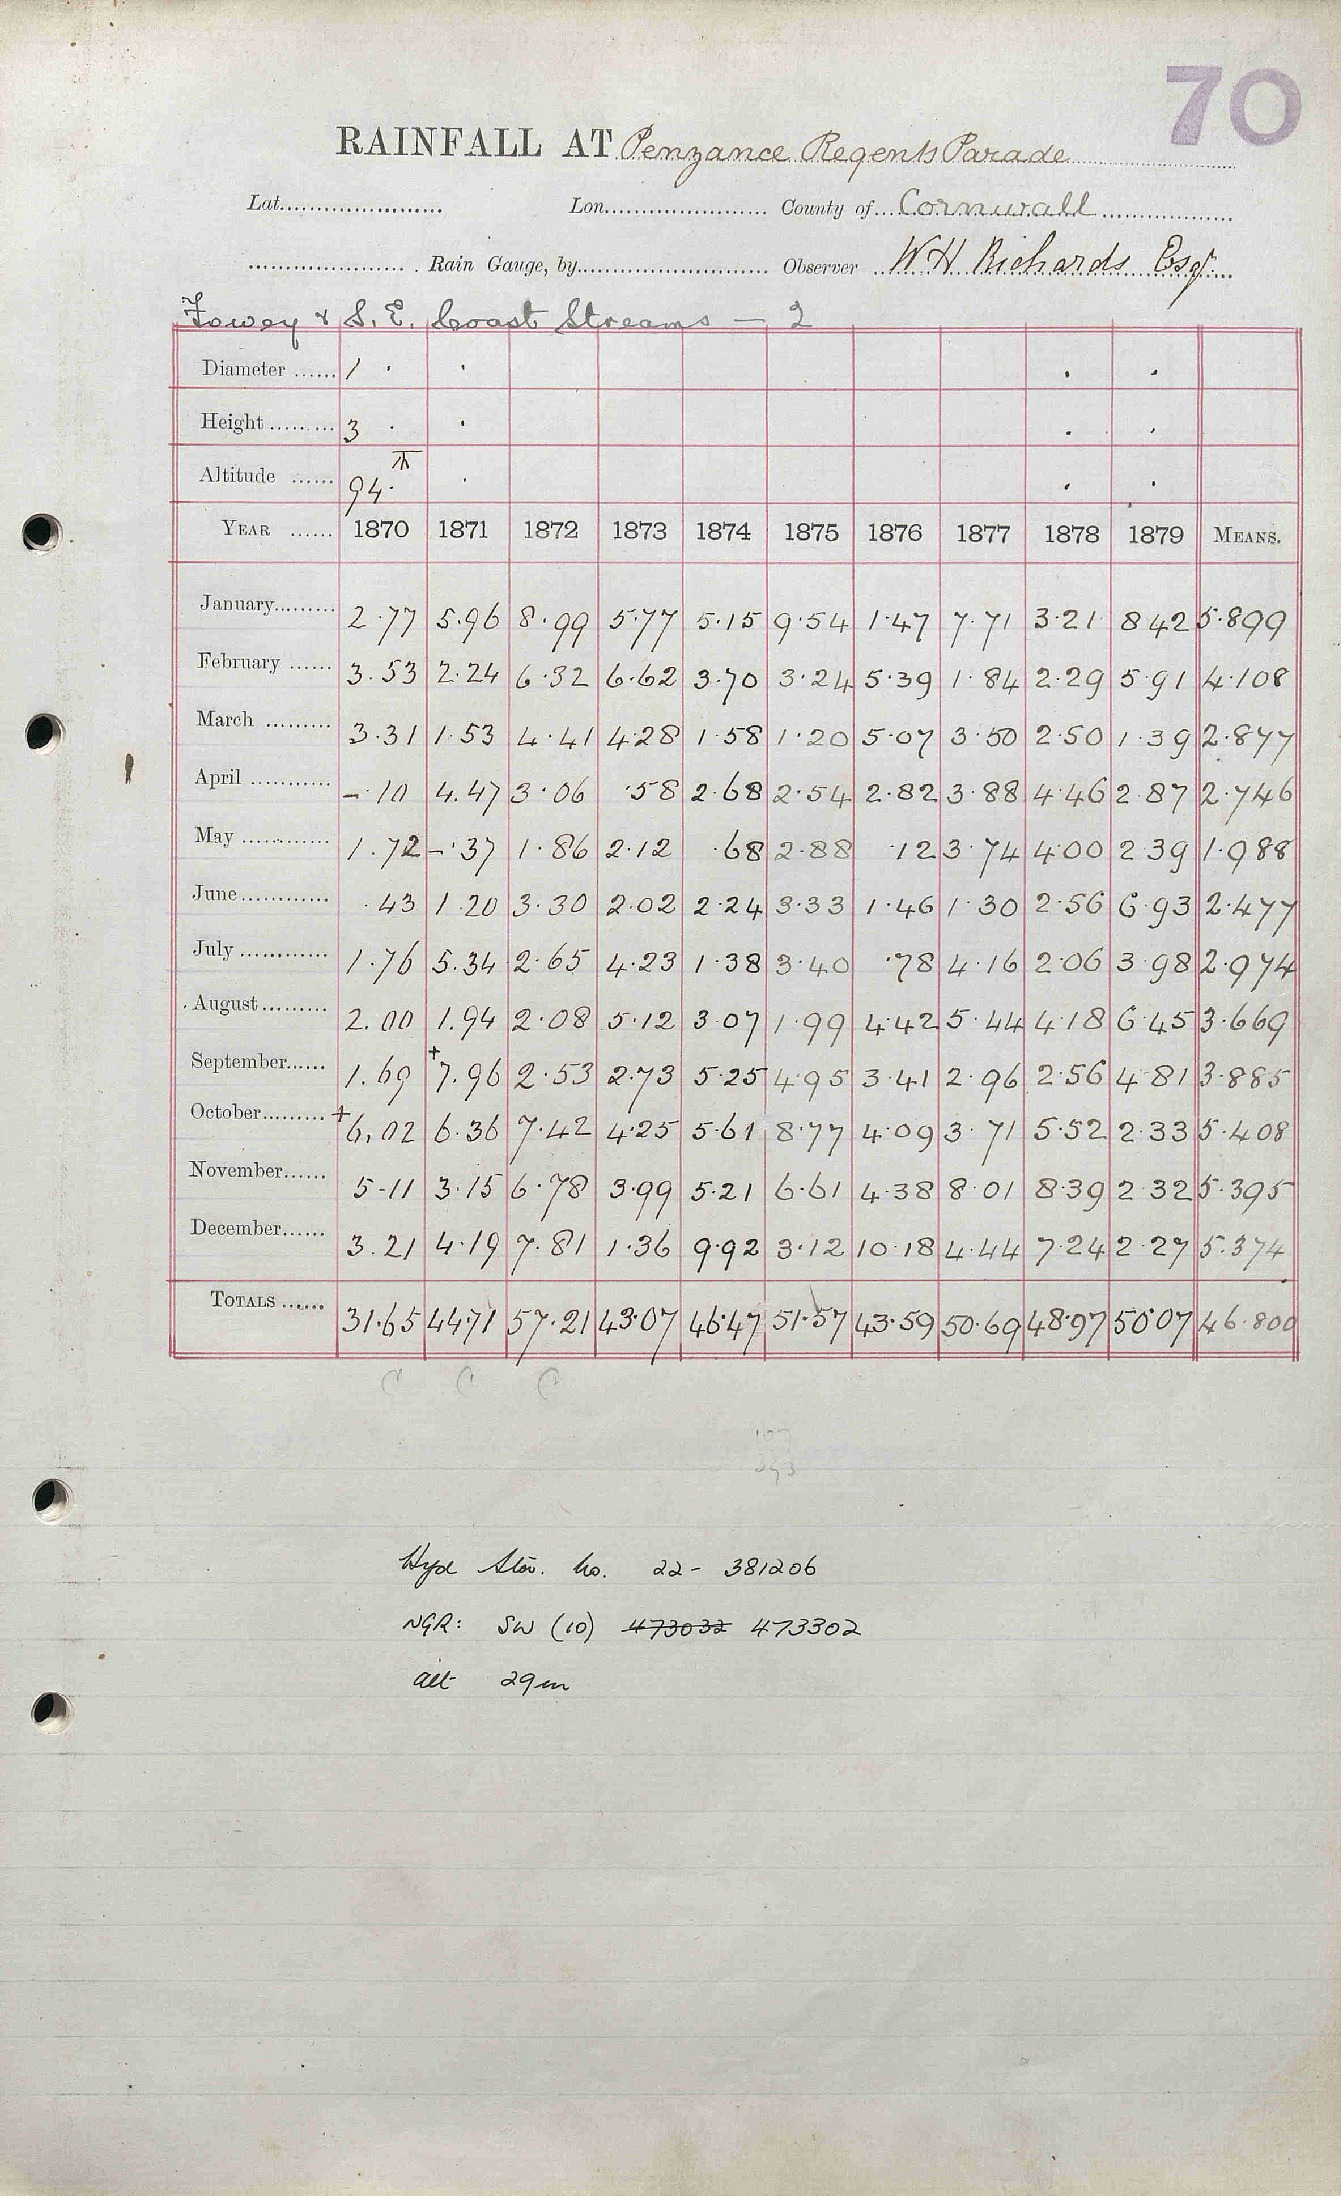 70
RAINFALL AT Penzance Regents Parade
Lat. Lon. County of Cornwall
Rain Gauge, by Observer W H Richards Esq
Fowey & S. E. Coast Streams — 2
Diameter ...... 1
Height ......... 3
Altitude ...... 94
YEAR ...... 1870 1871 1872 1873 1874 1875 1876 1877 1878 1879 MEANS.
January......... 2.77 5.96 8.99 5.77 5.15 9.54 1.47 7.71 3.21 8 42 5.899
February ...... 3.53 2.24 6.32 6.62 3.70 3.24 5.39 1.84 2.29 5 91 4.108
March ......... 3.31 1.53 4.41 4.28 1.58 1.20 5.07 3.50 2.50 1.39 2.877
April ............ -.10 4.47 3.06 .58 2.68 2.54 2.82 3.88 4.46 2.87 2.746
May ............ 1.72 -.37 1.86 2.12 .68 2.88 .12 3.74 4.00 2 39 1.988
June ............ .43 1.20 3.30 2.02 2.24 3.33 1.46 1.30 2.56 6 93 2.477
July ............ 1.76 5.34 2.65 4.23 1.38 3.40 .78 4.16 2.06 3 98 2.974
August ......... 2.00 1.94 2.08 5.12 3.07 1.99 4.42 5.44 4.18 6 45 3.669
September...... 1.69 +7.96 2.53 2.73 5.25 4.95 3.41 2.96 2.56 4 81 3.885
October......... +6.02 6.36 7.42 4.25 5.61 8.77 4.09 3.71 5.52 2 33 5.408
November...... 5-11 3.15 6.78 3.99 5.21 6.61 4.38 8.01 8.39 2 32 5.395
December...... 3.21 4.19 7.81 1.36 9.92 3.12 10.18 4.44 7.24 2.27 5.374
TOTALS ...... 31.65 44.71 57.21 43.07 46.47 51.57 43.59 50.69 48.97 50.07 46.800
C C C
Hyd Stn. No. 22- 381206
NGR: SW (10) 473032 473302
alt 29m